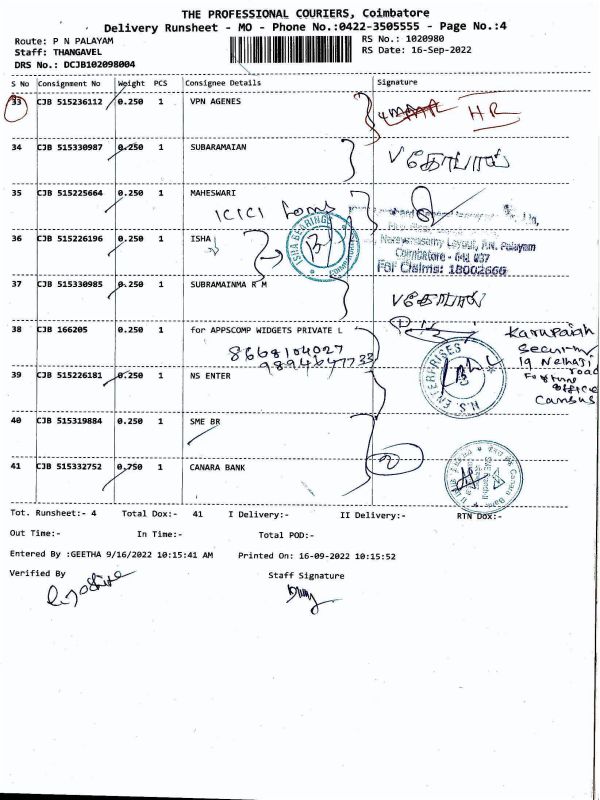 THE PROFESSIONAL COURIERS, Coimbatore
Delivery Runsheet - MO - Phone No.:0422-3505555 - Page No.:4
Route: P N PALAYAM
RS No.: 1020980
Staff: THANGAVEL
RS Date: 16-Sep-2022
DRS No.: DCJB102098004
S No Consignment No Weight PCS Consignee Details Signature
33 CJB 515236112 0.250 1 VPN AGENES HR
34 CJB 515330987 0.250 1 SUBARAMAIAN கோபால்
35 CJB 515225664 0.250 1 MAHESWARI
ICICI
36 CJB 515226196 0.250 1 ISHA
ISHA BEARINGS
Narayanasamy Layout, P.N. Palayam
Coimbatore - 641 037
For Claims: 18002666
37 CJB 515330985 0.250 1 SUBRAMAINMA R M கோபால்
38 CJB 166205 0.250 1 for APPSCOMP WIDGETS PRIVATE L
8668104027
9894647733
Karupaiah
Security
19 Nehruji
road
Fortune
office
Campus
39 CJB 515226181 0.250 1 NS ENTER
N.S. ENTERPRISES
40 CJB 515319884 0.250 1 SME BR
41 CJB 515332752 0.750 1 CANARA BANK
Canara Bank
Tot. Runsheet:- 4 Total Dox:- 41 I Delivery:- II Delivery:- RTN Dox:-
Out Time:- In Time:- Total POD:-
Entered By :GEETHA 9/16/2022 10:15:41 AM Printed On: 16-09-2022 10:15:52
Verified By Staff Signature